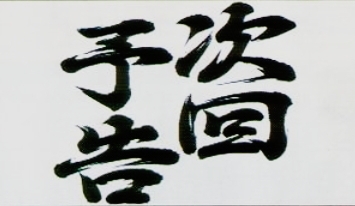 次回
予告